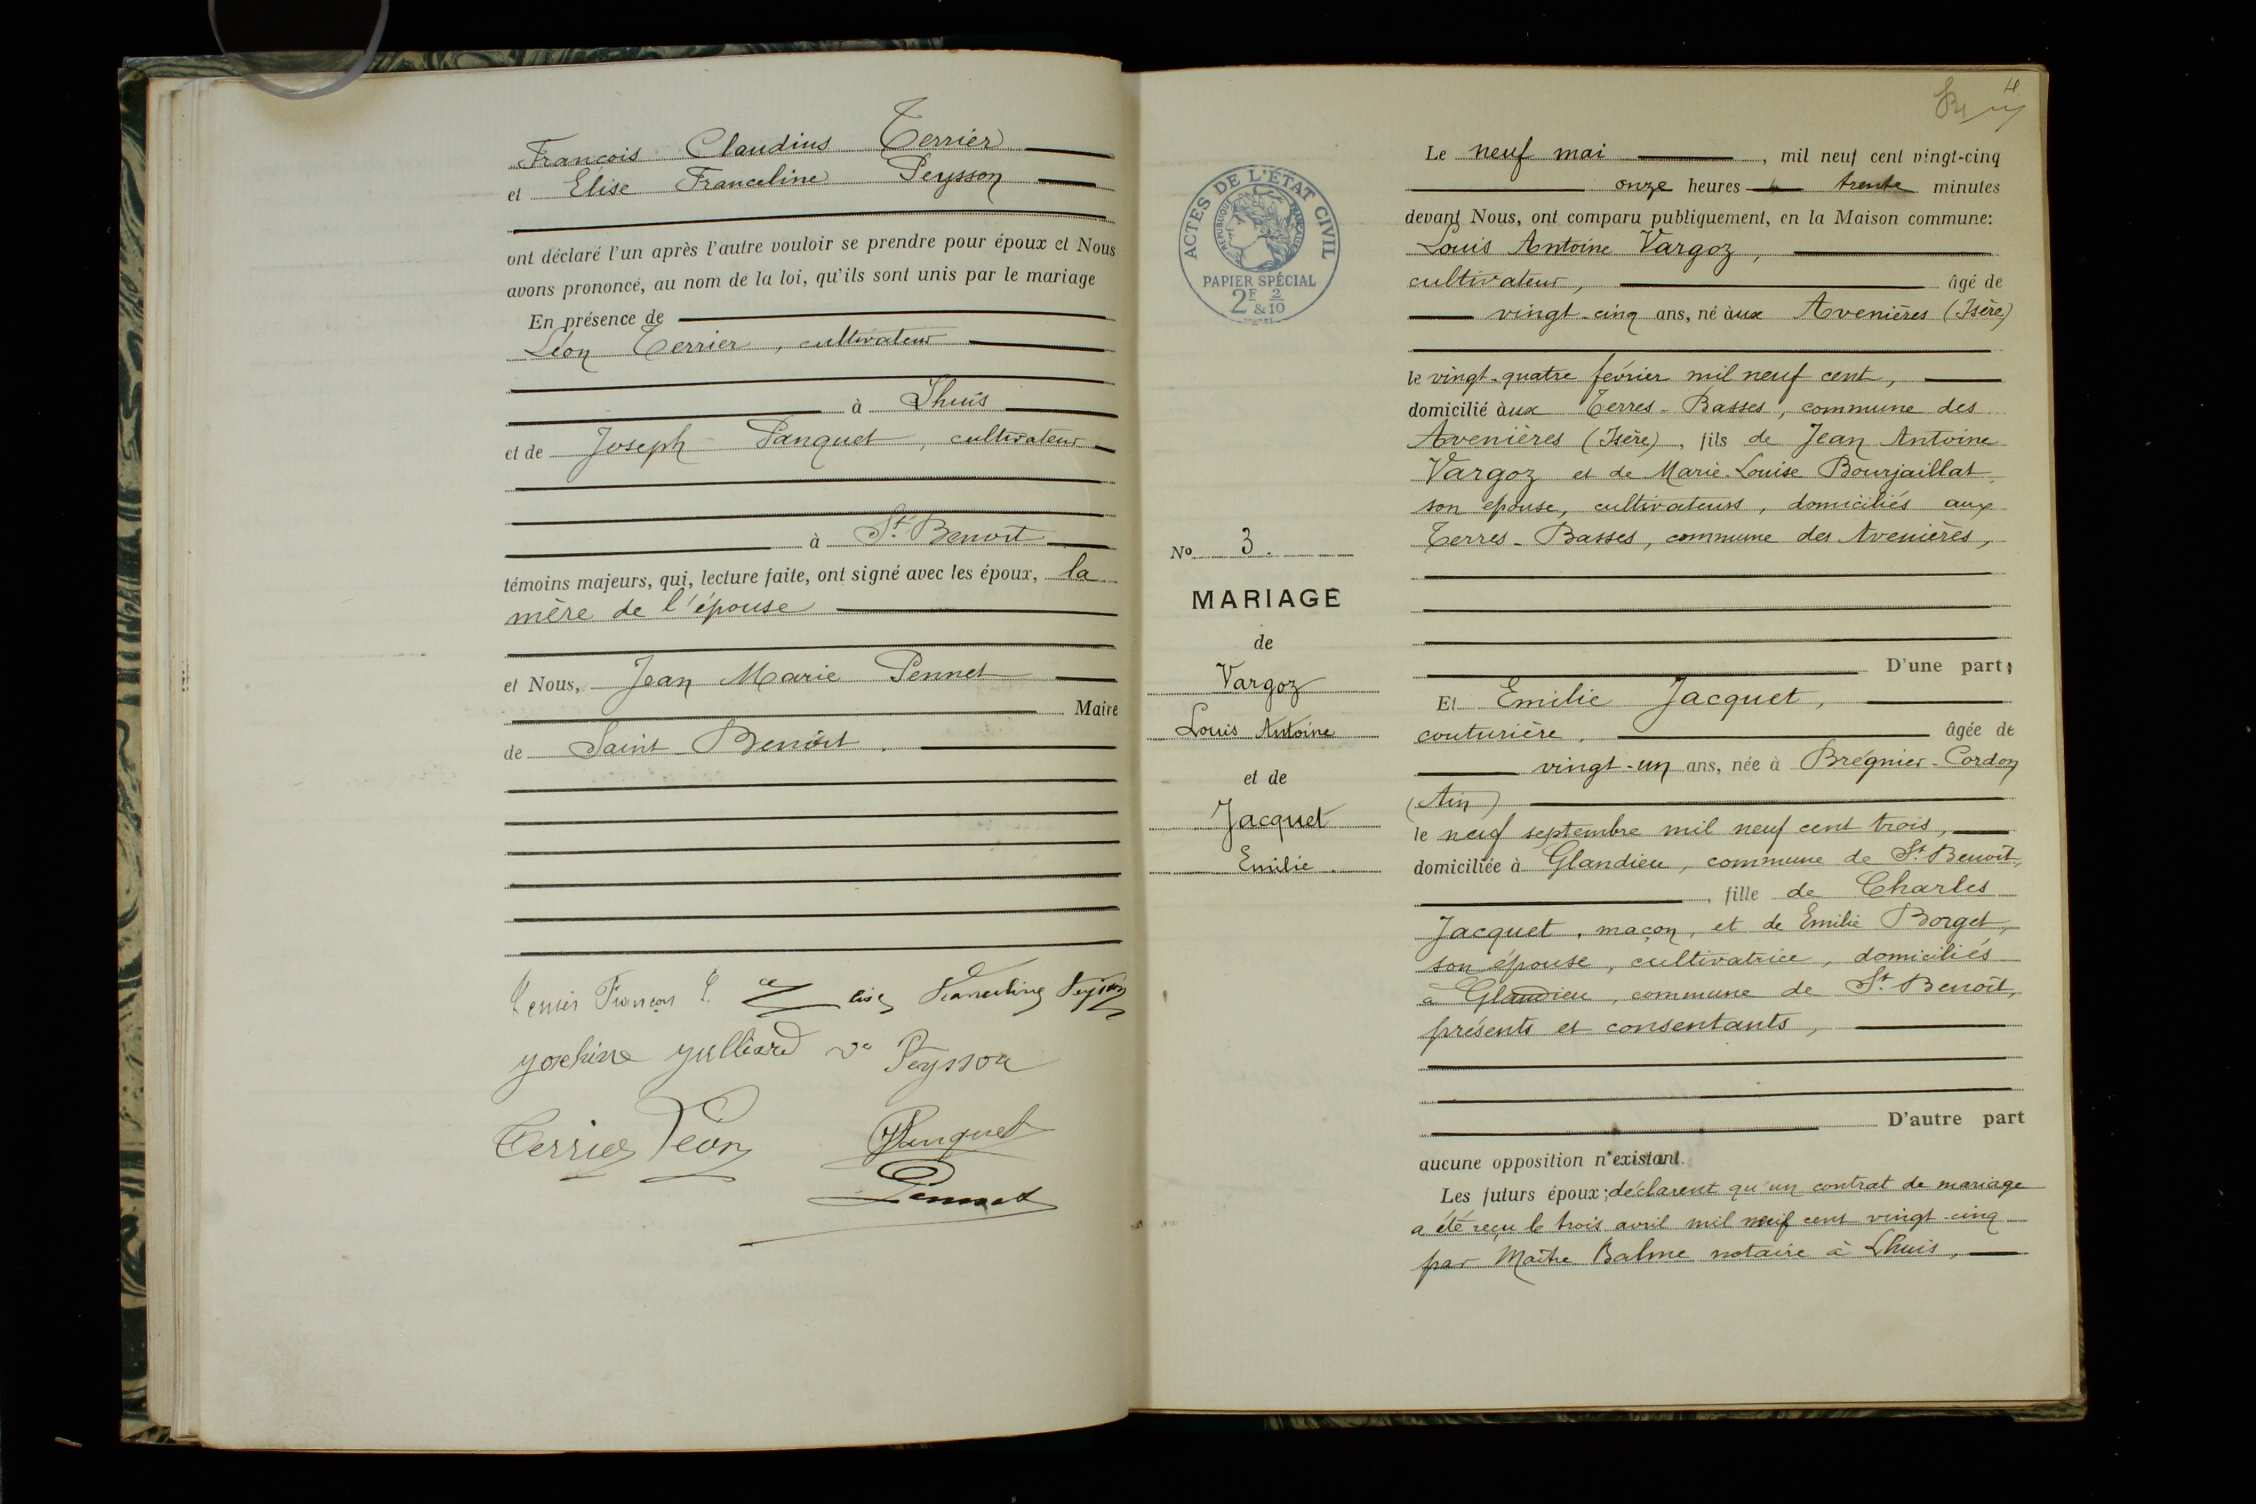 François Claudius Terrier
et Elise Franceline Peysson
ont déclaré l'un après l'autre vouloir se prendre pour époux et Nous
avons prononcé, au nom de la loi, qu'ils sont unis par le mariage
En présence de
Léon Terrier, cultivateur
à Lhuis
et de Joseph Panquet, cultivateur
à St Benoit
témoins majeurs, qui, lecture faite, ont signé avec les époux, la
mère de l'épouse
et Nous, Jean Marie Pennet
Maire
de Saint Benoît.
Terrier François
Franceline Peysson
Julliard ve Peysson
Terrier Léon
Panquet
Pennet
4
ACTES DE L'ÉTAT CIVIL
RÉPUBLIQUE FRANÇAISE
PAPIER SPÉCIAL
2F & 2/10
No 3.
MARIAGE
de
Vargoz
Louis Antoine
et de
Jacquet
Emilie.
Le neuf mai, mil neuf cent vingt-cinq
onze heures trente minutes
devant Nous, ont comparu publiquement, en la Maison commune:
Louis Antoine Vargoz,
cultivateur, âgé de
vingt-cinq ans, né àux Avenières (Isère)
le vingt-quatre février mil neuf cent,
domicilié àux Terres-Basses, commune des
Avenières (Isère), fils de Jean Antoine
Vargoz et de Marie-Louise Bourjaillat,
son épouse, cultivateurs, domiciliés aux
Terres-Basses, commune des Avenières,
D'une part;
Et Emilie Jacquet,
couturière, âgée de
vingt-un ans, née à Brégnier-Cordon
(Ain)
le neuf septembre mil neuf cent trois,
domiciliée à Glandieu, commune de St Benoît,
, fille de Charles
Jacquet, maçon, et de Emilie Borget,
son épouse, cultivatrice, domiciliés
à Glandieu, commune de St Benoît,
présents et consentants,
D'autre part
aucune opposition n'existant.
Les futurs époux; déclarent qu'un contrat de mariage
a été reçu le trois avril mil neuf cent vingt-cinq
par Maître Balme notaire à Lhuis,